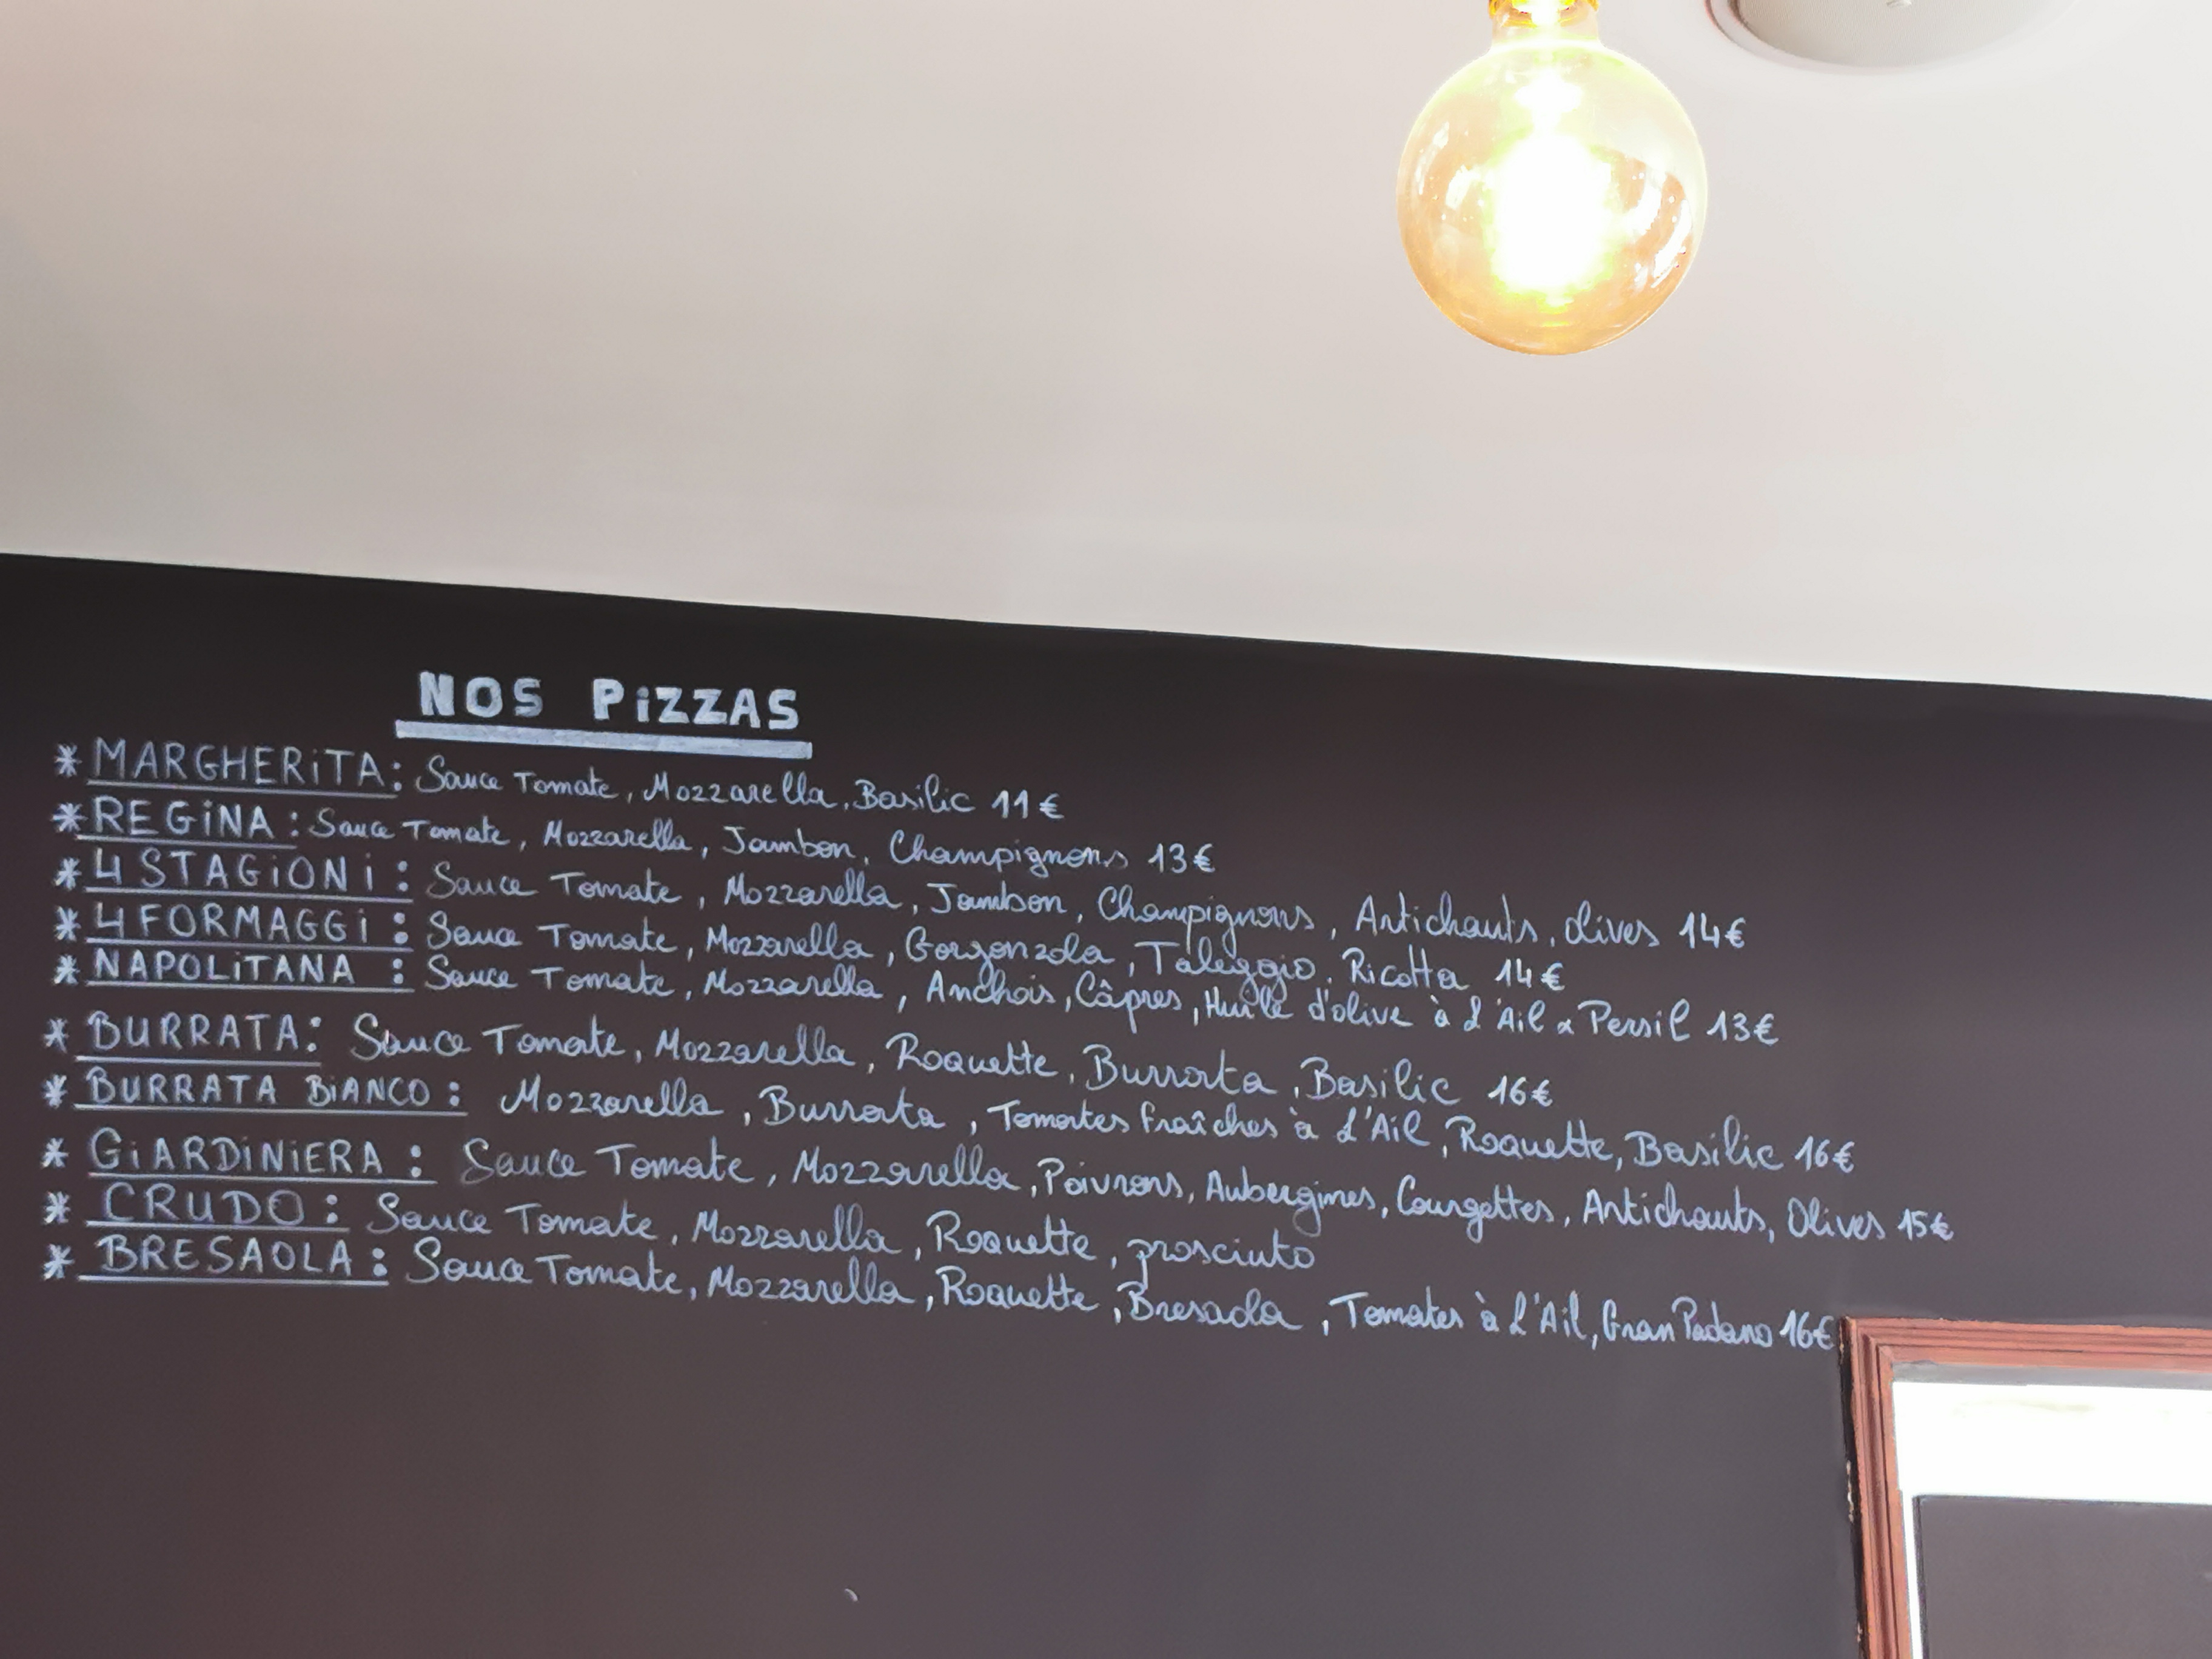 NOS PiZZAS
* MARGHERiTA : Sauce Tomate, Mozzarella, Basilic 11€
* REGiNA : Sauce Tomate, Mozzarella, Jambon, Champignons 13€
* 4 STAGiONi : Sauce Tomate, Mozzarella, Jambon, Champignons, Artichauts, Olives 14€
* 4 FORMAGGi : Sauce Tomate, Mozzarella, Gorgonzola, Taleggio, Ricotta 14€
* NAPOLiTANA : Sauce Tomate, Mozzarella, Anchois, Câpres, Huile d'olive à l'Ail & Persil 13€
* BURRATA : Sauce Tomate, Mozzarella, Roquette, Burrata, Basilic 16€
* BURRATA BiANCO : Mozzarella, Burrata, Tomates fraîches à l'Ail, Roquette, Basilic 16€
* GiARDiNiERA : Sauce Tomate, Mozzarella, Poivrons, Aubergines, Courgettes, Artichauts, Olives 15€
* CRUDO : Sauce Tomate, Mozzarella, Roquette, prosciuto
* BRESAOLA : Sauce Tomate, Mozzarella, Roquette, Bresaola, Tomates à l'Ail, Gran Padano 16€